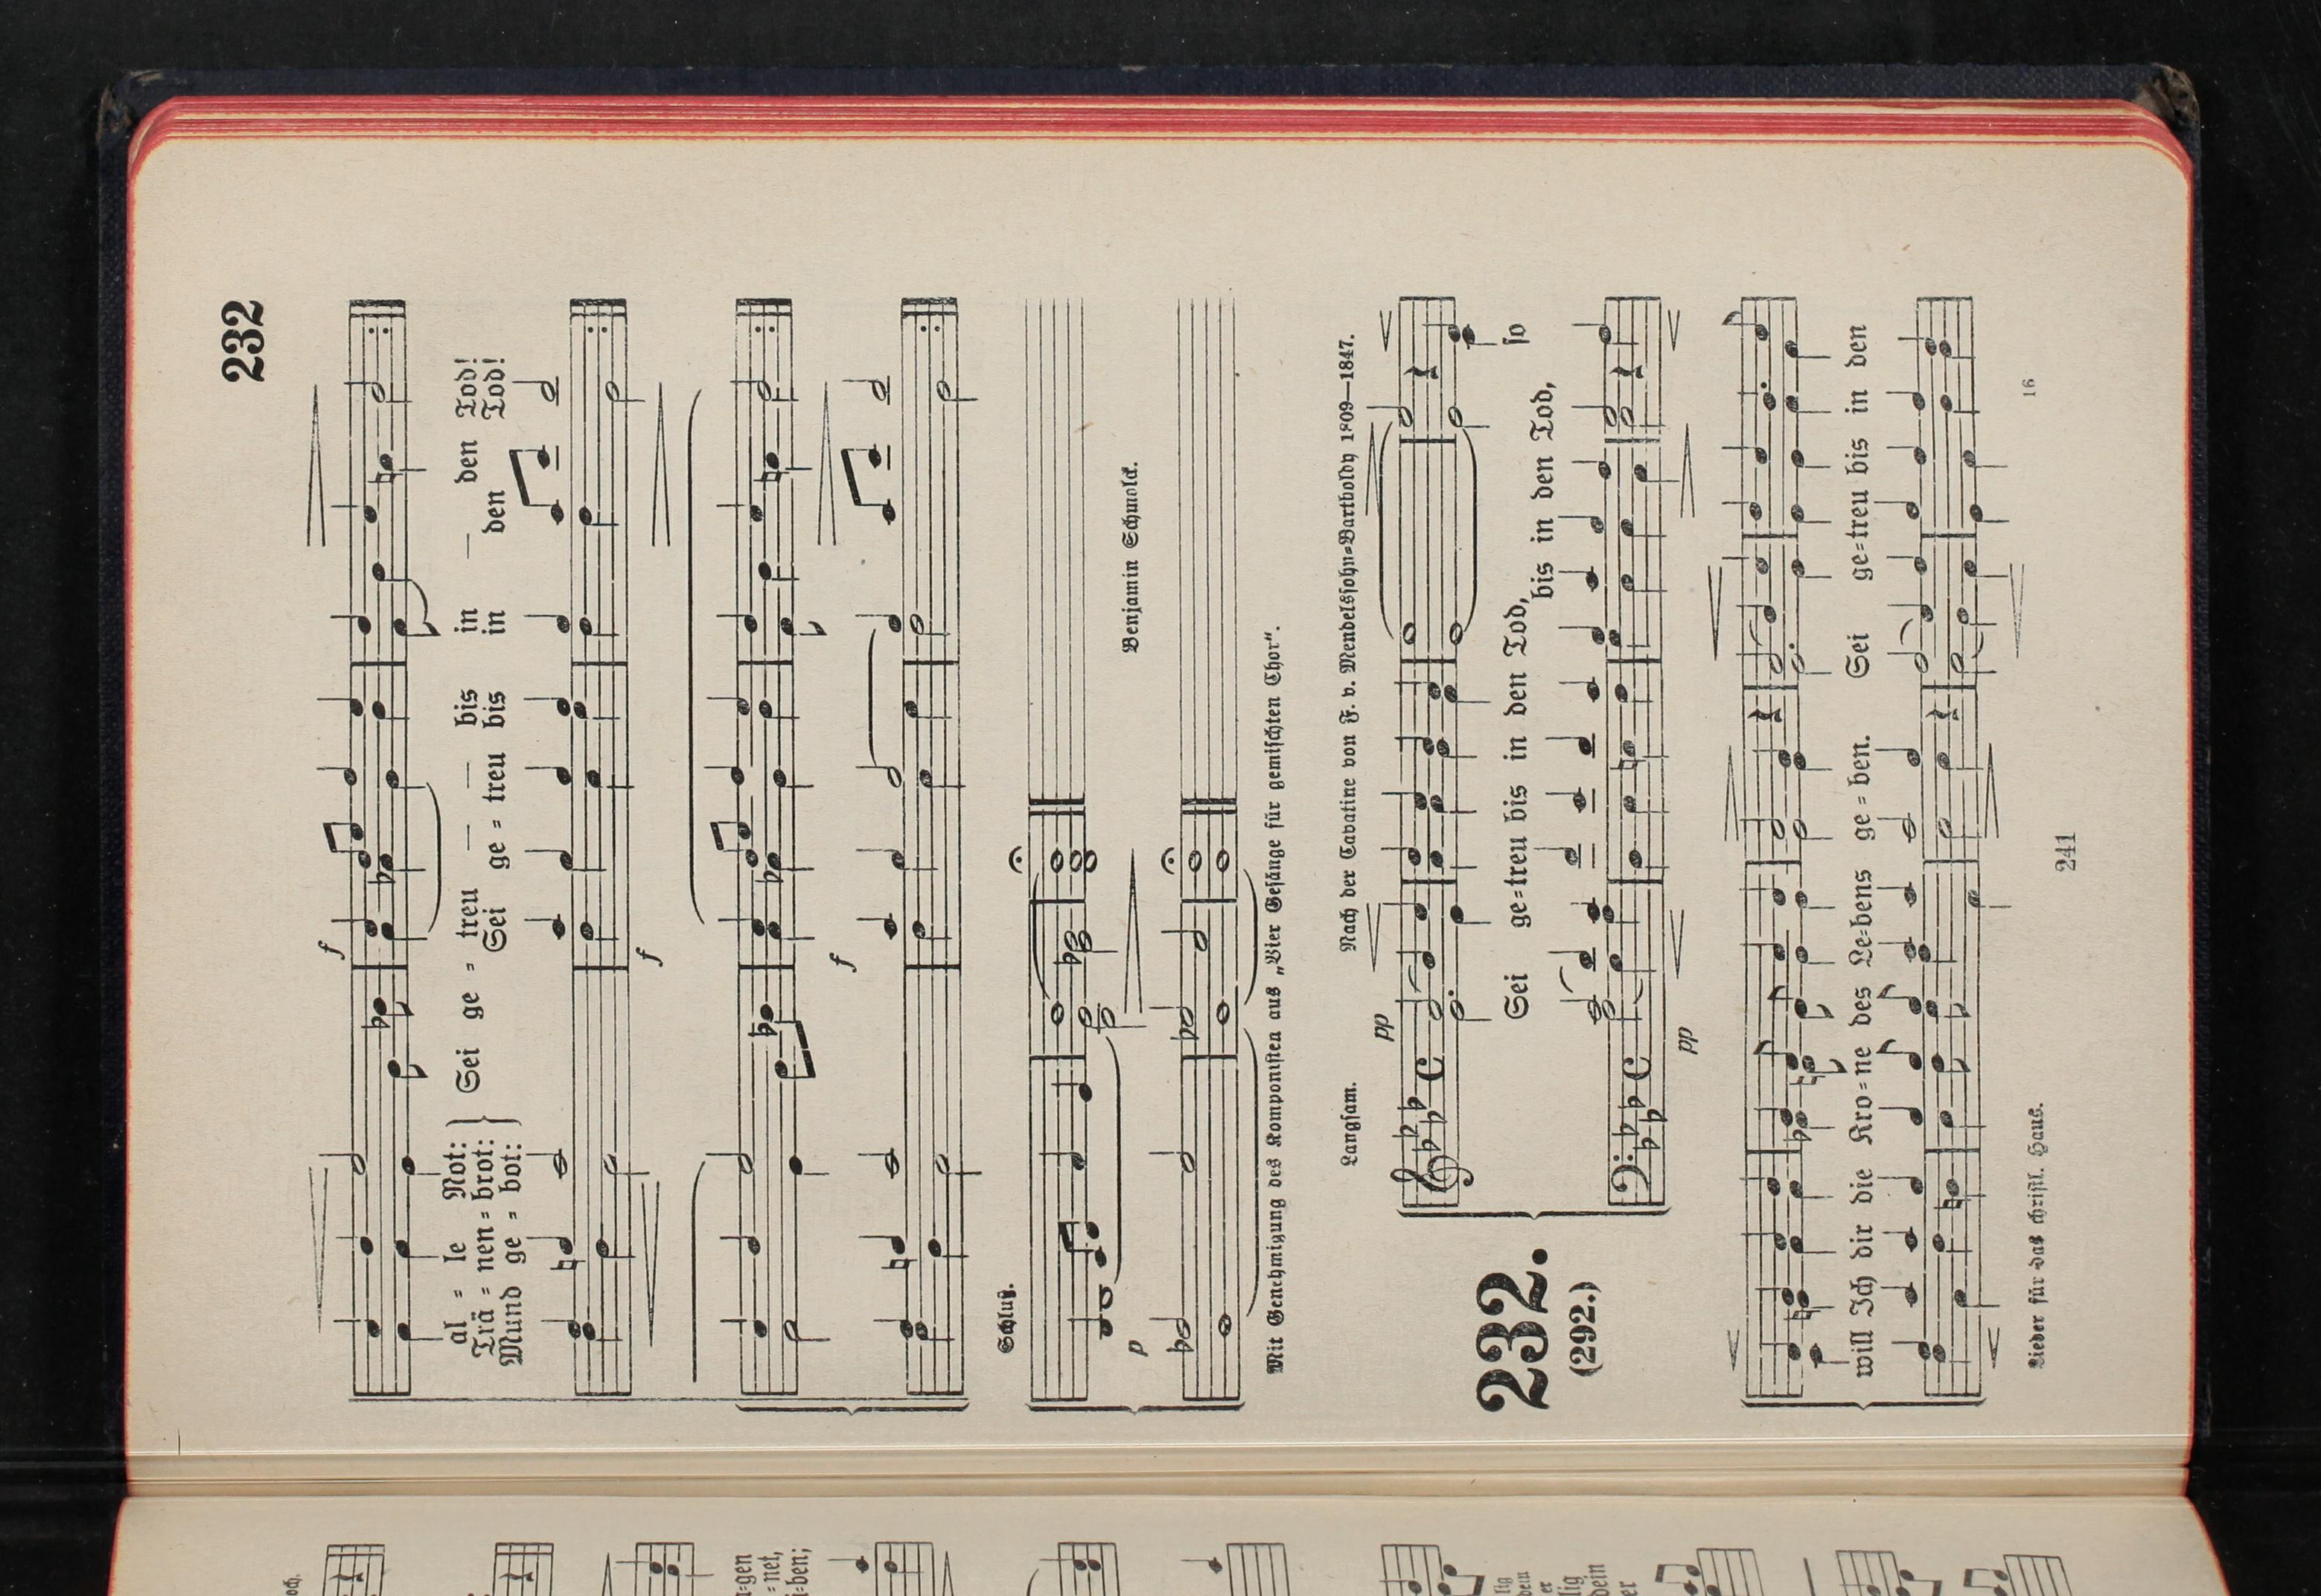 232
f
al = le Not:
Trä = nen = brot:
Mund ge = bot:
Sei ge = treu — — bis in — den Tod!
Sei ge = treu bis in den Tod!
f
f
Schluß.
p
Benjamin Schmolck.
Mit Genehmigung des Komponisten aus „Vier Gesänge für gemischten Chor“.
232.
(292.)
Langsam.
Nach der Cavatine von F. v. Mendelssohn=Bartholdy 1809—1847.
pp
Sei ge=treu bis in den Tod, so
bis in den Tod,
pp
will Ich dir die Kro=ne des Le=bens ge=ben. Sei ge=treu bis in den
Lieder für das christl. Haus.
241
16
och.
=gen
=net,
i=ben;
lig
dein
er
lig
dein
er